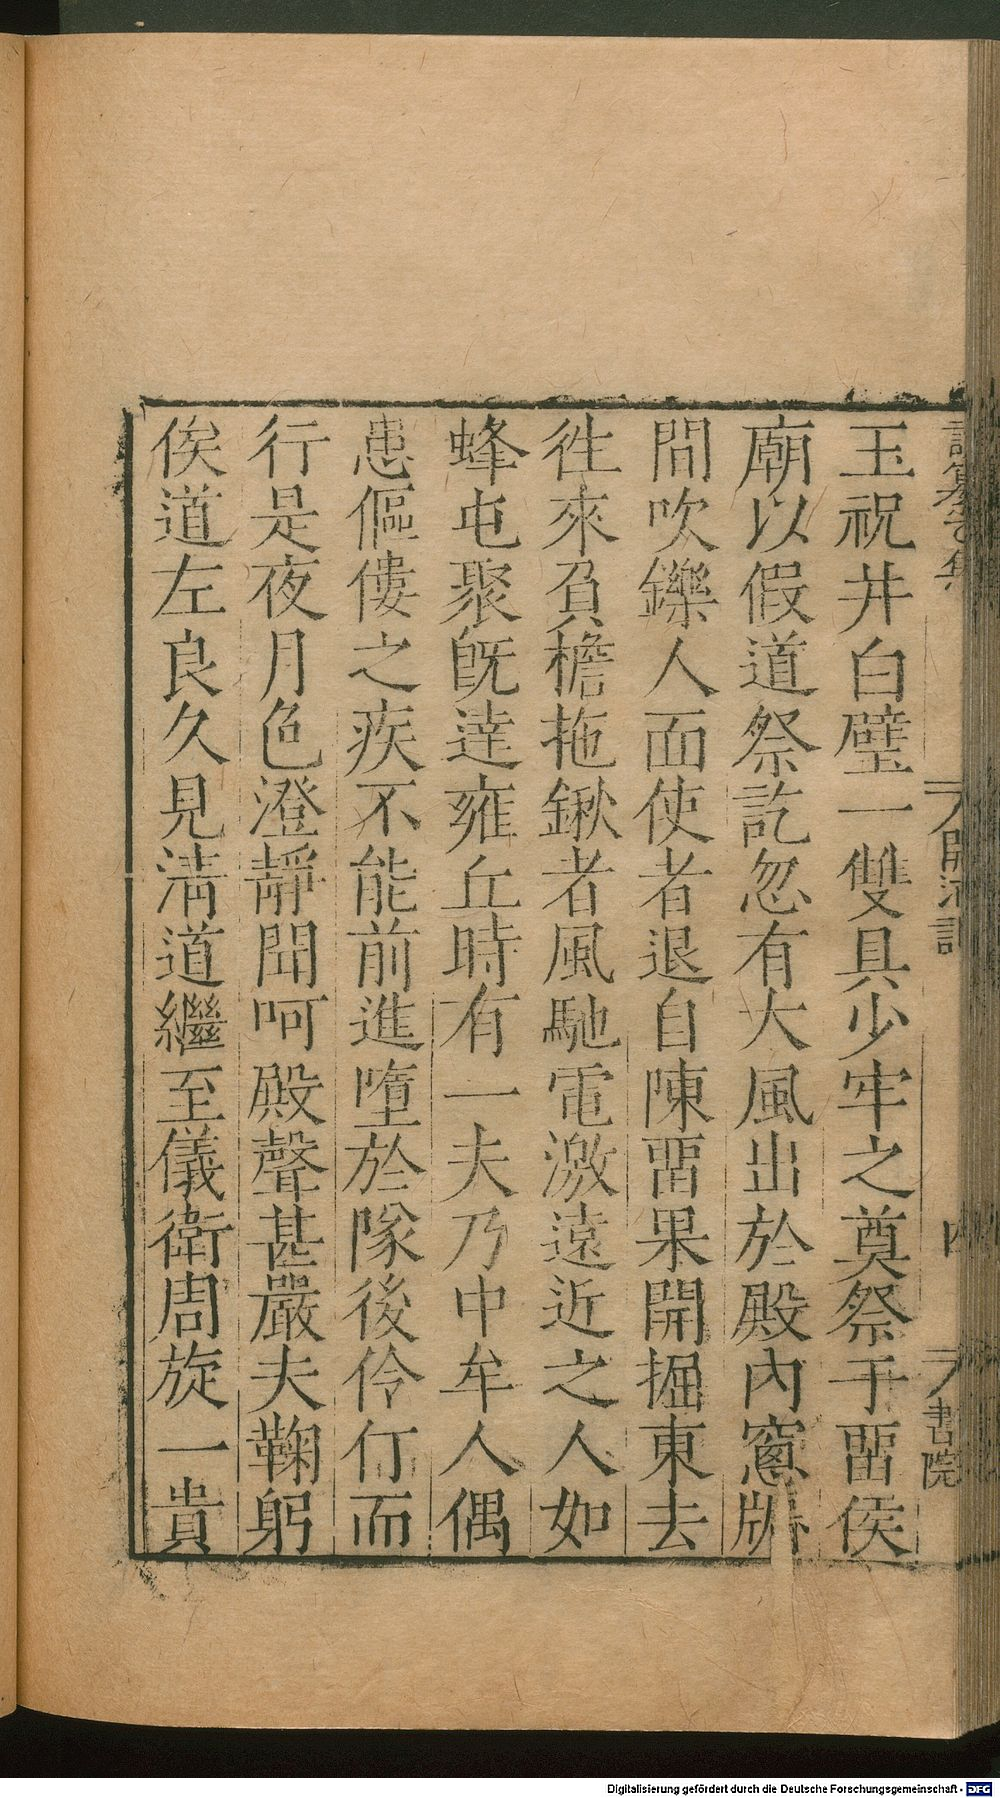 玉祝并白璧一雙具少牢之奠祭于畱侯
廟以假道祭訖忽有大風出於殿內窻牖
間吹鑠人面使者退自陳畱果開掘東去
徃來負檐拖鍬者風馳電激遠近之人如
蜂屯聚旣逹雍丘時有一夫乃中牟人偶
患傴僂之疾不能前進墮於隊後伶仃而
行是夜月色澄靜聞呵殿聲甚嚴夫鞠躬
俟道左良久見淸道繼至儀衛周旋一貴
開河記
四
書院
Digitalisierung gefördert durch die Deutsche Forschungsgemeinschaft - DFG